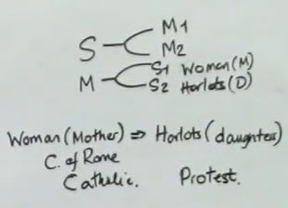 M1
S
M2
S1 Woman (M)
M
S2 Harlots (D)
Woman (Mother) ⇒ Harlots (daughters)
C. of Rome
Catholic. Protest.